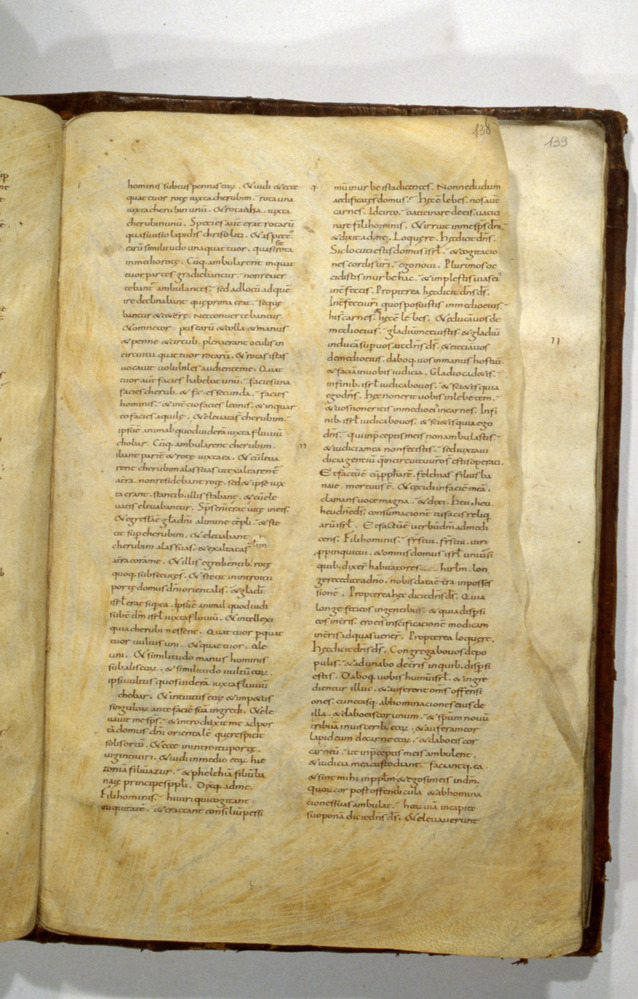 138
139
hominis subtus pennis eaꝝ. & uidi & ecce
quattuor rotę iuxta cherubim. rota una
iuxta cherubin unū. & rota alia iuxta
cherubin unū. Species aut erat rotarū
quasi uisio lapidis chrisoliti. & aspectꝰ
earū similitudo una quattuor. quasi sit rota
in medio rotę. Cūq; ambularent in quat
tuor partes gradiebantur. non reuer
tebant ambulantes. sed ad locū ad quē
ire declinabant que prima erat. seque
bantur & ceterę. nec conuertebantur.
& omne corpꝰ earū & colla & manus
& penne & circuli. plena erant oculis in
circuitu quattuor rotarū. & rotas istas
uocauit uolubiles audiente me. Quat
tuor aut facies habebat unū. facies una
facies cherub. & facies secunda. facies
hominis. & in tercio facies leonis. & in quar
to facies aquile. & eleuata s̄ cherubim.
ipsū ē animal quod uiderā iuxta fluuiū
chobar. Cūq; ambularent cherubim.
ibant pariter & rotę iuxta ea. & cū leua
rent cherubim alas suas ut exaltarent͛
a terra. non residebant rotę. sed & ipse iux
ta erant. stantib; illis stabant. & cū ele
uatis eleuabantur. Sps enī erat uitę in eis.
& egressa ē gła dnī a limine tēpli. & ste
tit sup cherubim. & eleuantia
cherubim alas suas. & exaltata s̄
a terra coram me. & illis egredientib; rotę
quoq; subsecutę s̄. & stetit in introitu
portę domus dnī orientalis. & gła dī
isrł erat sup ea. Ipsū ē animal quod uidi
subter dm̄ isrł iuxta fluuiū. & intellexi
quia cherubin essent. Quattuor p quat
tuor uultus uni. & quattuor alę
uni. & similitudo manus hominis
sub alis eaꝝ. & similitudo uultū eoꝝ.
ipsi uultus quos uiderā iuxta fluuiū
chobar. & intuitus eoꝝ & impetus
singuloꝝ ante facie suā ingredi. & ele
uauit me sps. & introduxit me ad por
tā domus dnī orientalē que respicit
solis ortū. & ecce in introitu portę.
uiginti uiri. & uidi in medio eoꝝ hie
zonia filiū azur. & pheltia filiū ba
naię principes ppłi. Dixitq; ad me.
Fili hominis. hii uiri qui cogitant
iniquitatē. & tractant consiliū pessi
mū in urbe ista dicentes. Nonne dudum
aedificatę s̄ domus? Hęc ē lebes. nos aut
carnes. Idcirco uaticinare de eis. uatici
nare fili hominis. & irruit in me sps dnī
& dixit ad me. Loquere. Hęc dicit dns̄.
Sic locuti estis domus isrł. & cogitatio
nes cordis uri ego noui. Plurimos oc
cidistis in urbe hac. & implestis uias eiꝰ
interfectis. Propterea hęc dicit dns̄ ds̄.
Interfecti uri quos posuistis in medio eiꝰ
hi s̄ carnes. hęc ē lebes. & educā uos de
medio eiꝰ. gladiū metuistis & gladiū
inducā sup uos ait dns̄ ds̄. & eiciā uos
de medio eiꝰ. dabo q; uos in manus hostiū
& faciā in uobis iudicia. Gladio cadetis.
in finib; isrł iudicabo uos. & scietis quia
ego dns̄. Hęc non erit uobis in lebetem.
& uos non eritis in medio eiꝰ in carnes. In fi
nib; isrł iudicabo uos. & scietis quia ego
dns̄. qui in pceptis meis non ambulastis.
& iudicia mea non fecistis. sed iuxta iu
dicia gentiū que in circuitu uro s̄ estis operati.
Et factū ē cū pphetarē. feltias filius ba
naie mortuus ē. & cecidi in facie mea.
clamans uoce magna. & dixi. Heu heu
heu dne ds̄. consumatione tu facis reliq
arū isrł. Et factū ē uerbū dnī ad me di
cens. Fili hominis. fr̄s tui. fr̄s tui. uiri
ꝓpinqui tui. & omnis domus isrł uniuersi
quib; dixer̄ habitatores hirłm. lon
ge recedite a dno. nobis data ē tra in posses
sionē. Propterea hęc dicit dns̄ ds̄. Quia
longe feci eos in gentibus. & quia disp̄si
eos in terris. ero eis in scificationē modicam
in terris ad quas uenerт. Propterea loquere.
Hęc dicit dns̄ ds̄. Congregabo uos de po
pulis. & adunabo de terris in quib; disp̄si
estis. Dabo q; uobis humū isrł. & ingre
dientur illuc. & auferent oms̄ offensi
ones. cunctasq; abhominationes eius de
illa. & dabo eis cor unum. & spm nouū
tribuā in uisceribus eoꝝ. & auferam cor
lapideum de carne eoꝝ. & dabo eis cor
carneū. ut in pceptis meis ambulent.
& iudicia mea custodiant. faciantq; ea.
& sint mihi in pplm & ego sim eis in dm̄.
Quoꝝ cor post offendicula & abhomina
tiones suas ambulat. hoꝝ uiā in capite
suo ponā dicit dns̄ ds̄. & eleuauerunt